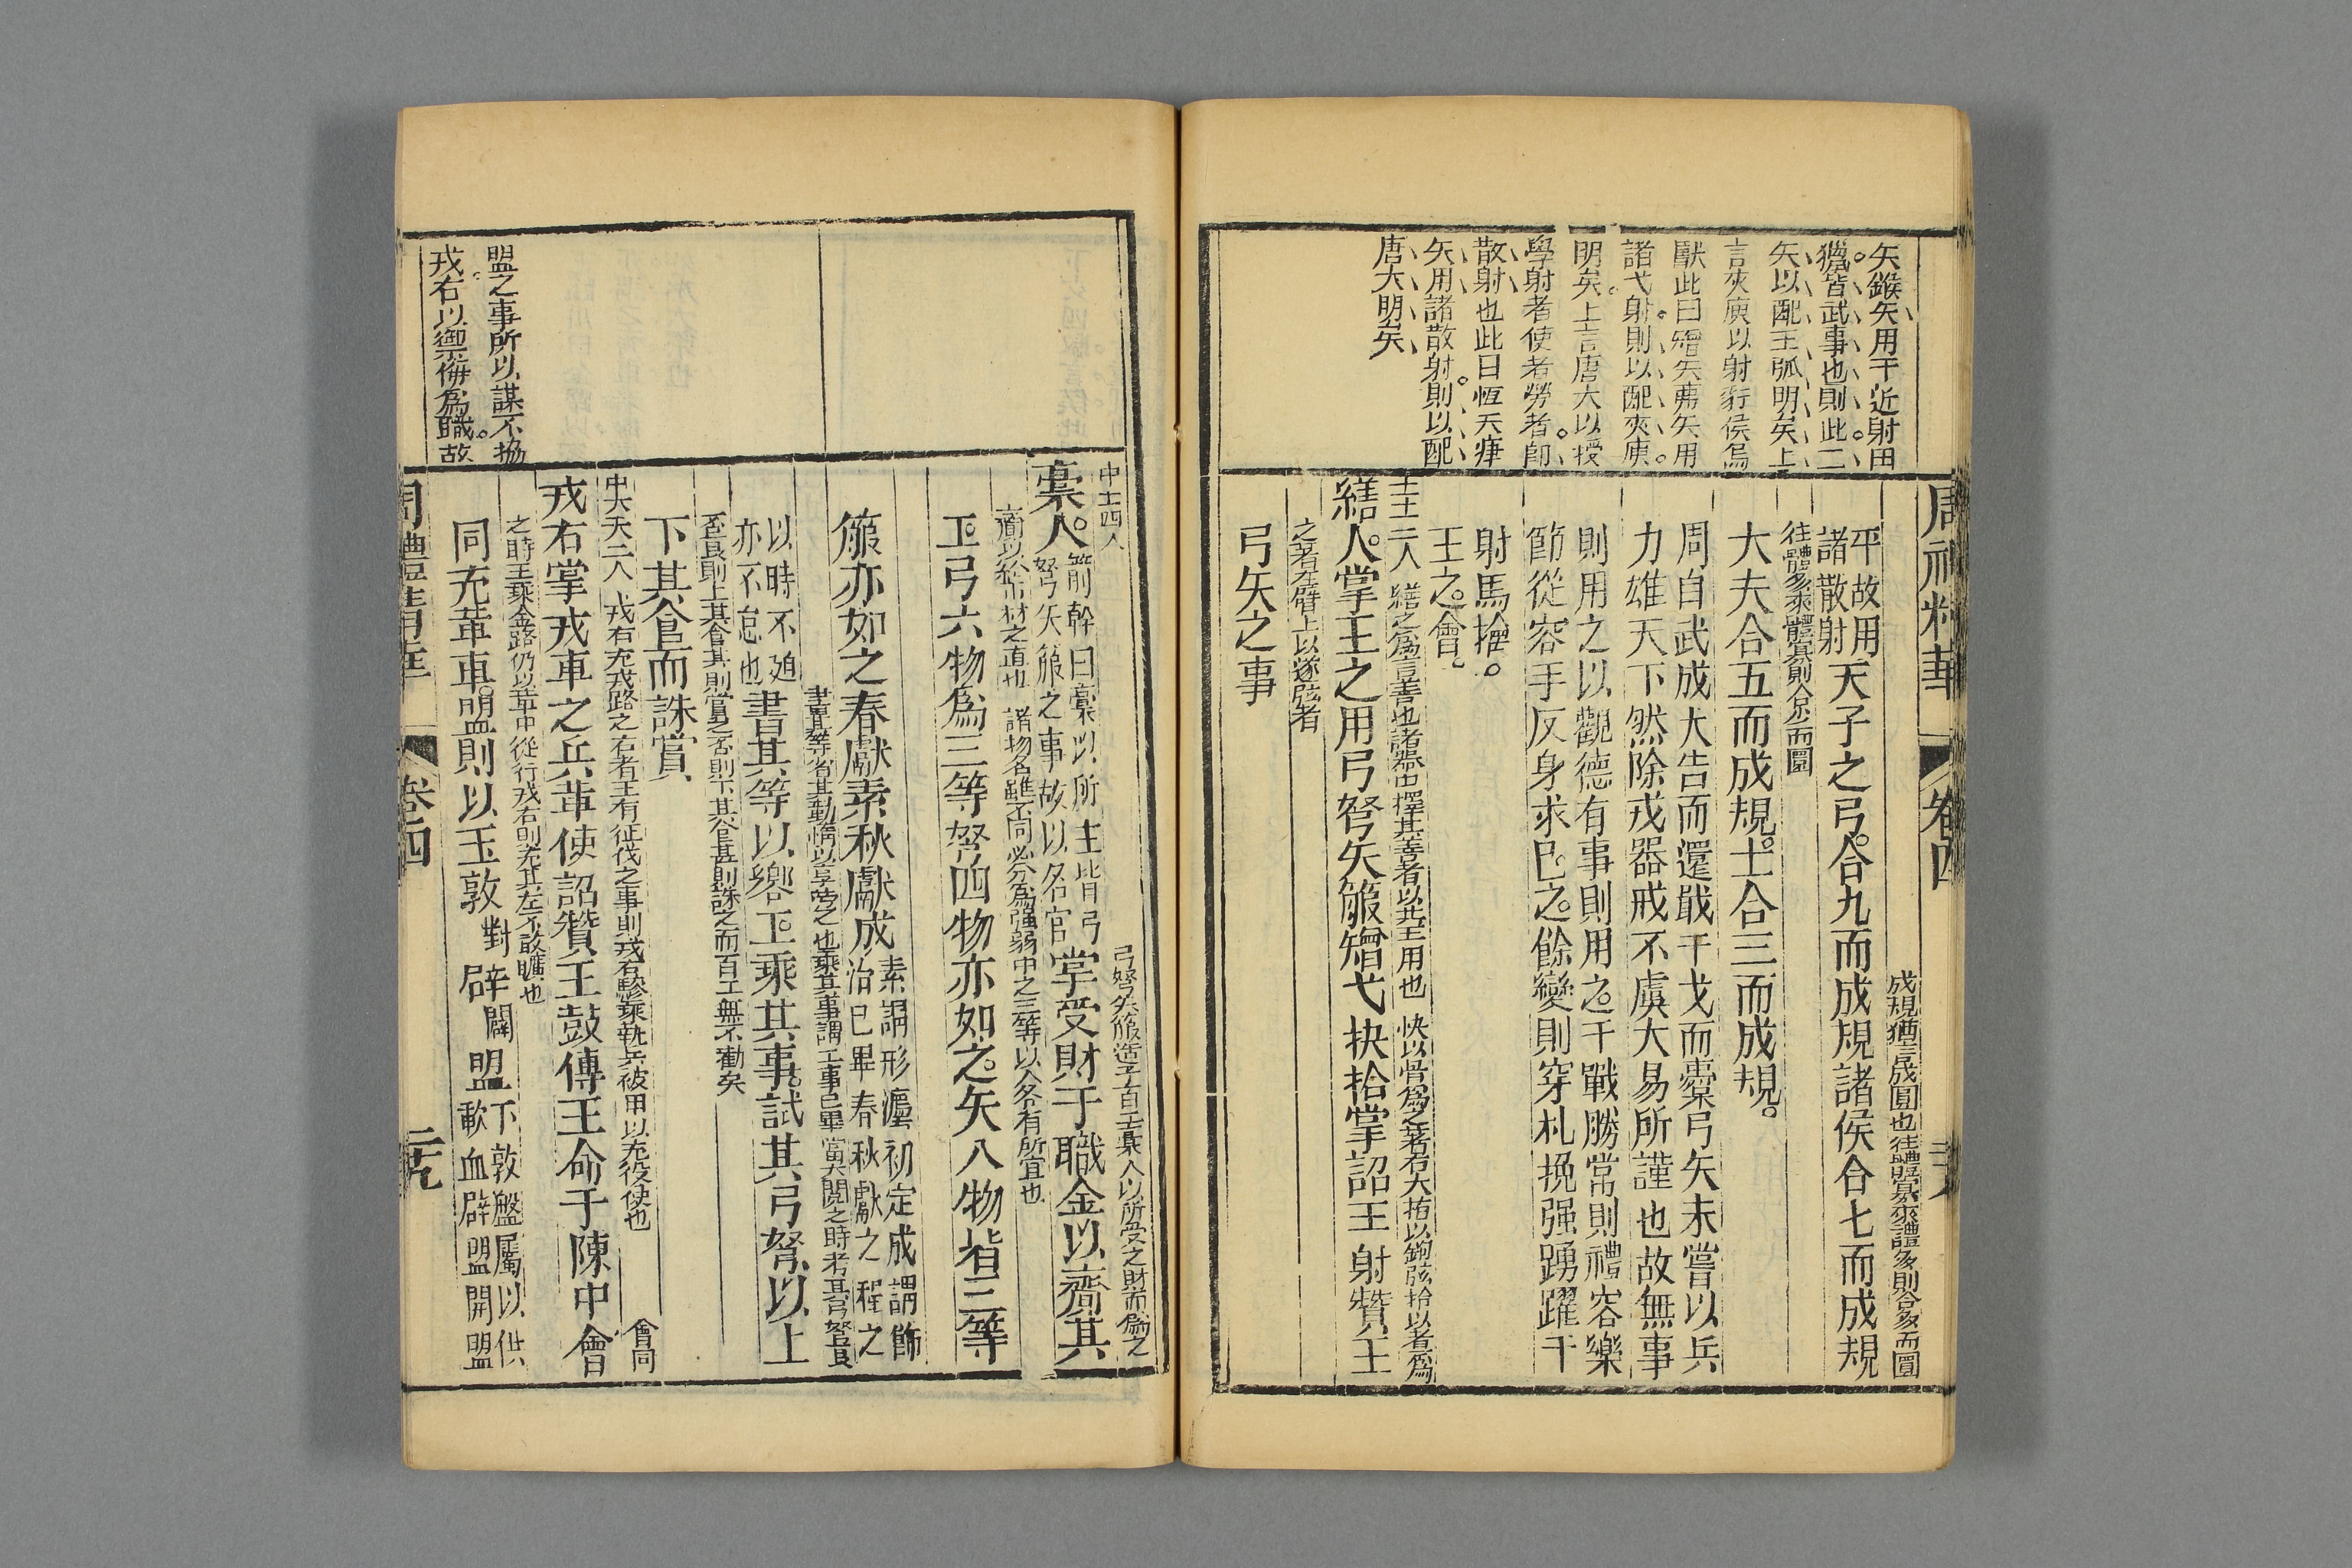 周禮精華
卷四
矢鍭矢用于近射田
獵皆武事也則此二
矢以配王弧明矣上
言夾庾以射豻侯鳥
獸此曰矰矢茀矢用
諸弋射則以配夾庾
明矣上言唐大以授
學射者使者勞者卽
散射也此曰恆矢痺
矢用諸散射則以配
唐大明矣
成規猶言成圓也往體寡來體多則合多而圓
平故用
諸散射
天子之弓合九而成規諸侯合七而成規
往體多來體寡則合少而圜
大夫合五而成規士合三而成規
周自武成大告而還戢干戈而櫜弓矢未嘗以兵
力雄天下然除戎器戒不虞大易所謹也故無事
則用之以觀德有事則用之于戰勝常則禮容樂
節從容手反身求已之餘變則穿札挽强踴躍干
射馬撻
王之會
王士二人 繕之爲言善也諸器中擇其善者以共王用也 抉以骨爲之著右大指以鉤弦拾以者爲
繕人掌王之用弓弩矢箙矰弋抉拾掌詔王射贊王
之著左臂上以遂弦者
弓矢之事
中士四人
弓弩矢箙造于百工槀人以所受之財而爲之
槀人
箭幹曰槀以所主皆弓
弩矢箙之事故以名官
掌受財于職金以齎其
齎以給市材之直也 諸物名雖不同必分爲强弱中之三等以人各有所宜也
工弓六物爲三等弩四物亦如之矢八物皆三等
箙亦如之春獻素秋獻成
素謂形灋初定成謂飾
治已畢春秋獻之程之
書其等省其勤惰以享勞之也乘其事謂工事已畢當大閱之時考其弓弩良
以時不廹
亦不怠也
書其等以饗工乘其事試其弓弩以上
苦良則上其食其則當之否則下其食甚則誅之而百工無不勸矣
下其食而誅賞
中大夫二人 戎右充戎路之右者王有征伐之事則戎右驂乘執兵被甲以充役使也
會同
戎右掌戎車之兵革使詔贊王鼓傳王命于陳中會
之時王乘金路仍以革車從行戎右則充其左不敢曠也
同充革車盟則以玉敦
對
辟
闢
盟
下敦盤屬以供
歃血辟盟開盟
盟之事所以謀不協
戎右以禦侮爲職故
周禮精華
卷四
二十九